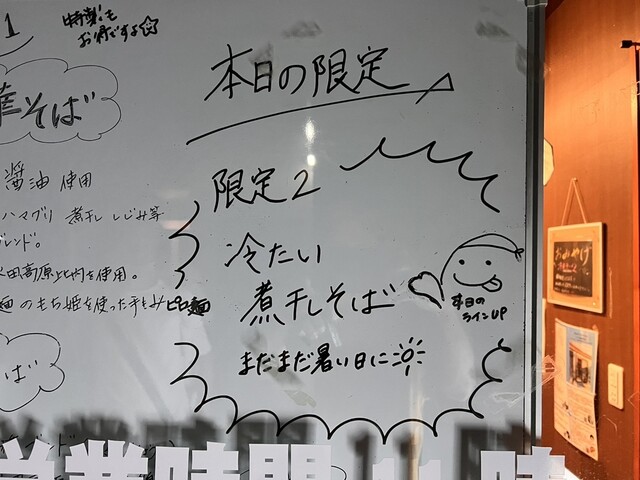 1
特製も
お得ですよ
華そば
醤油 使用
ハマグリ 煮干し しじみ等
ブレンド。
高原比内を使用。
麺のもち姫を使った手もみ麺
ば
本日の限定
限定2
冷たい
煮干しそば
まだまだ暑い日に
本日の
ラインUP
おみやげ
営業時間 11時